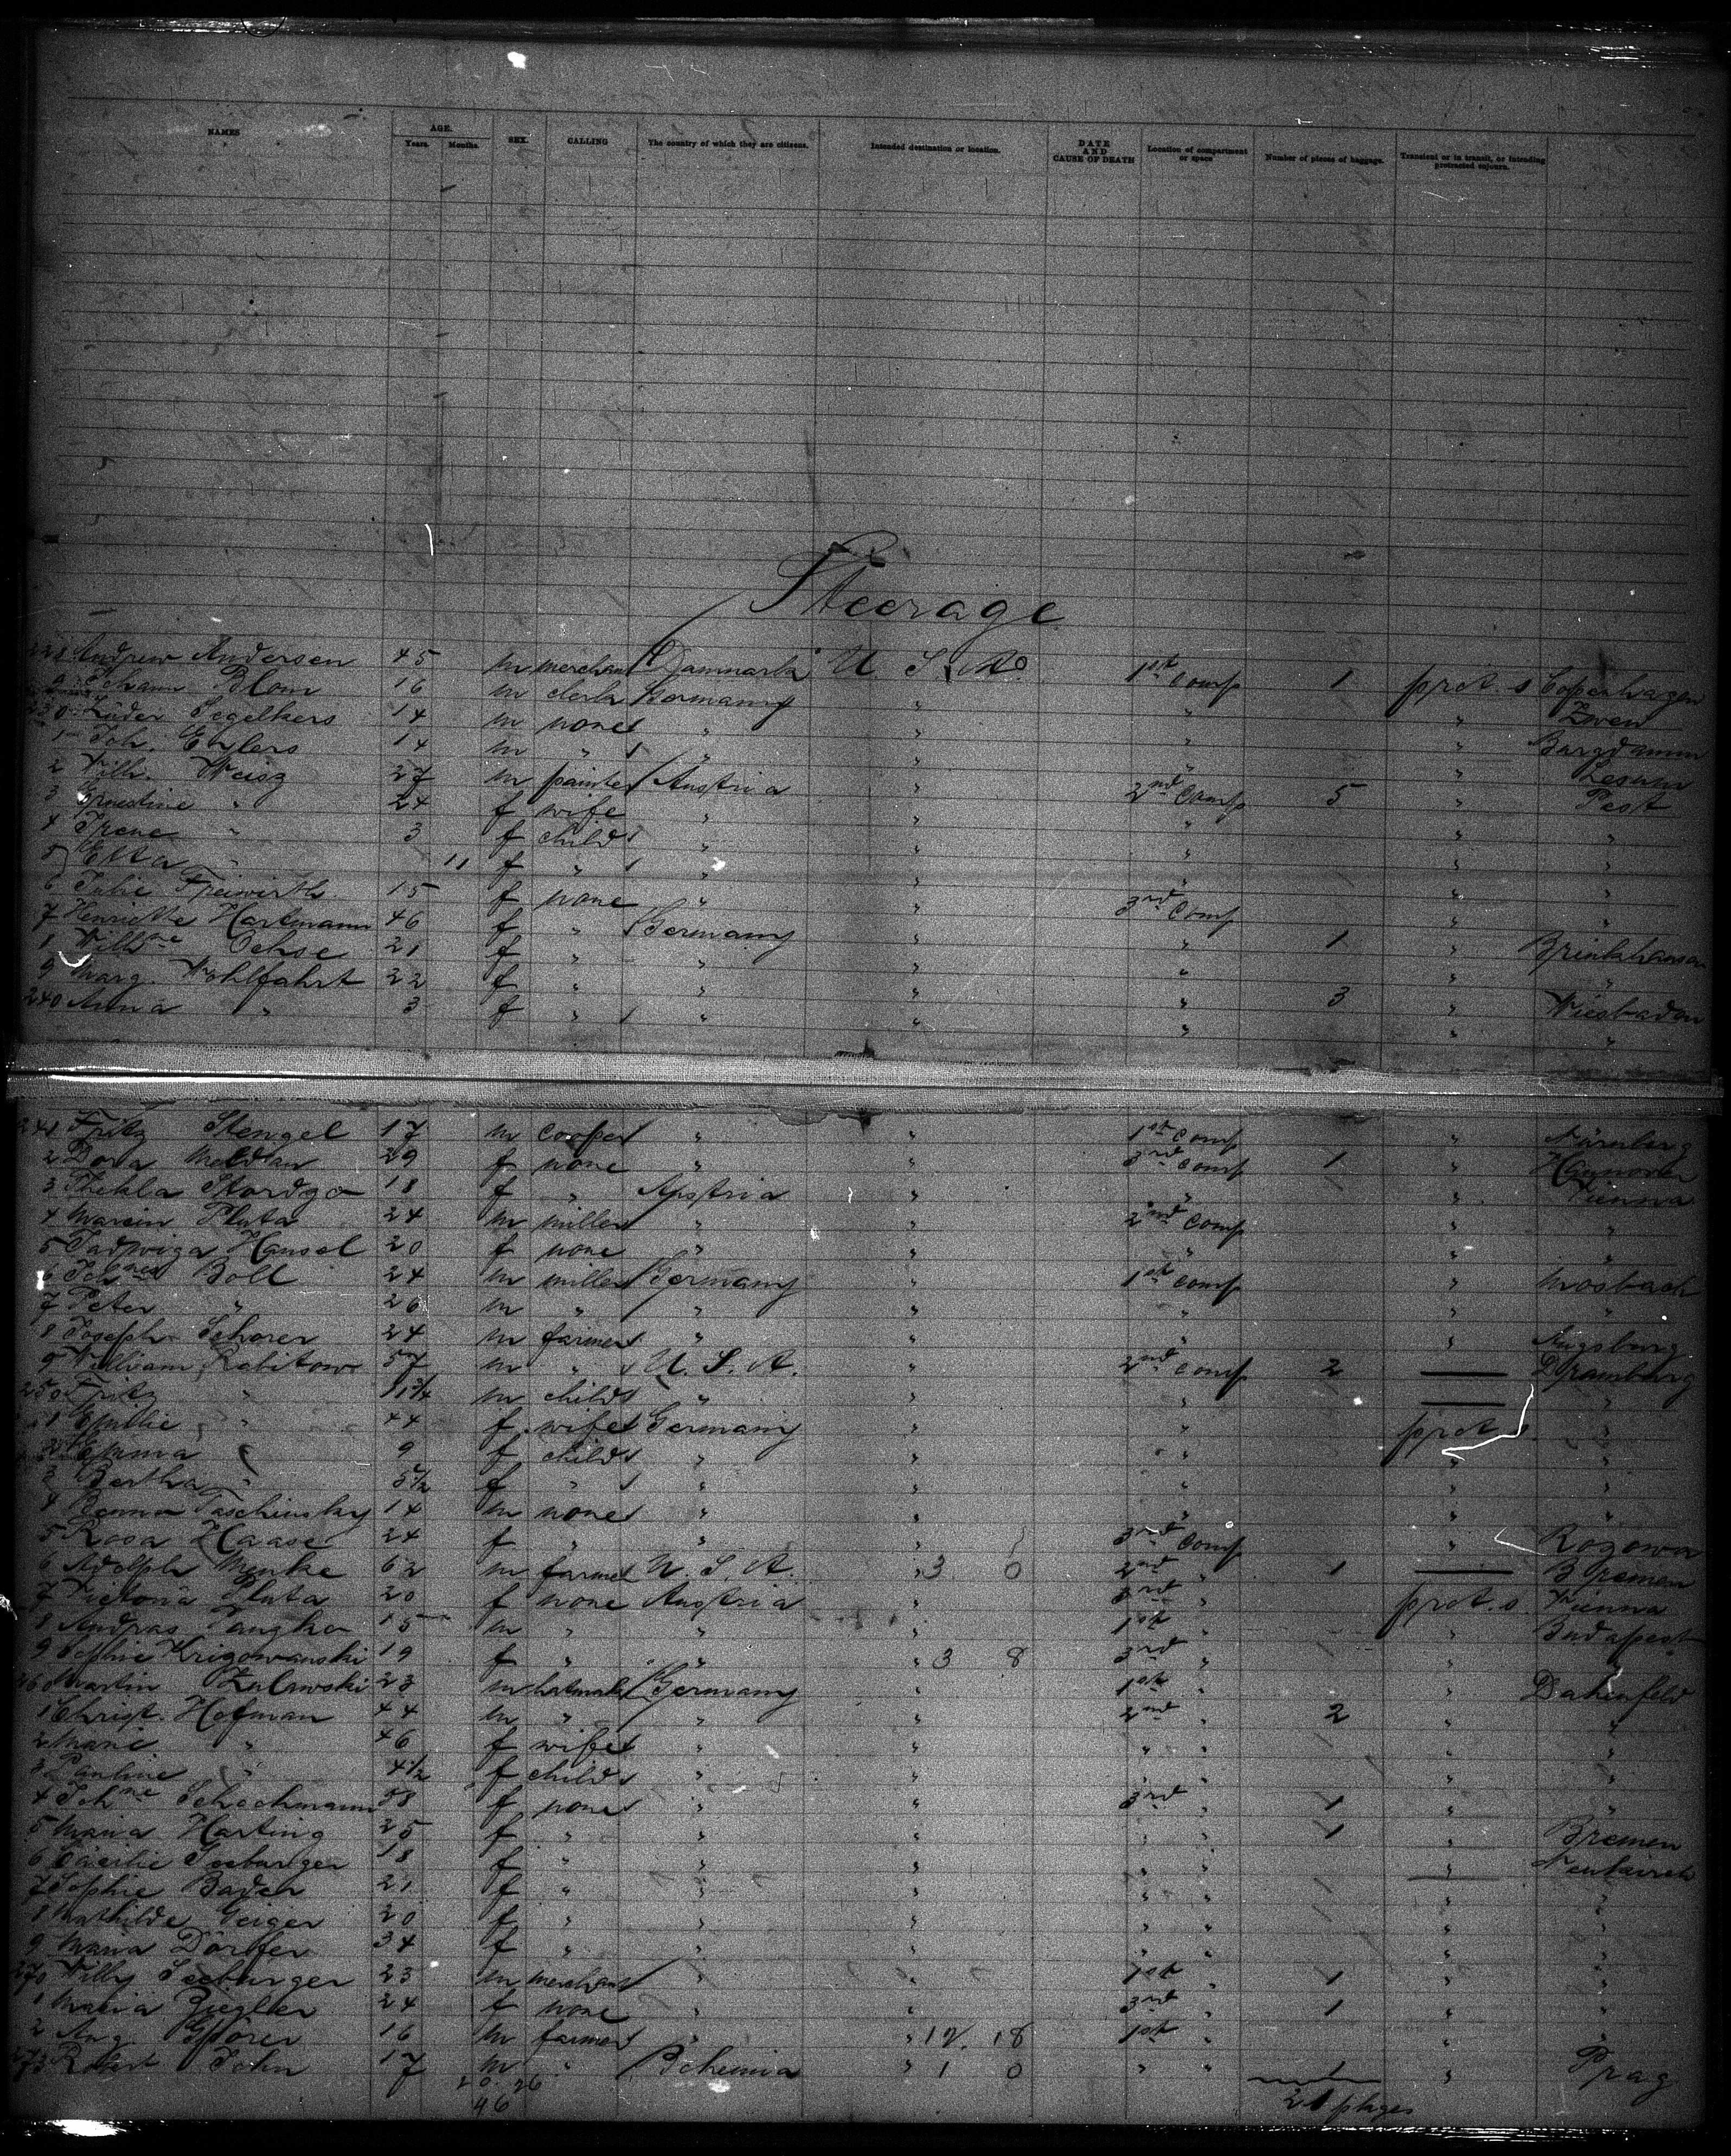 NAMES AGE. Years. Months. SEX. CALLING The country of which they are citizens. Intended destination or location. DATE AND CAUSE OF DEATH Location of compartment or space Number of pieces of baggage. Transient or in transit, or intending protracted sojourn.
Steerage
228 Andrew Andersen 45 m merchant Danmark U. S. A. 1st Comp 1 prot. s Copenhagen
9 Johann Blom 16 m clerk Germany " " "
230 Lüder Segelkers 14 m none " " " "
1 Joh. Ehlers 14 m " " " " " Lesum
2 Wilh. Weisz 27 m painter Austria " 2nd Comp 5 " Pest
3 Ernestine " 24 f wife " " " " "
4 Irene " 3 f child " " " " "
5 Etta " 11 f " " " " " "
6 Julie Freiwirth 15 f none " " 3rd Comp " "
7 Henriette Hartmann 46 f " Germany " " 1 " Brinkhausen
8 Willhne Ochse 21 f " " " " " "
9 Marg. Wohlfahrt 22 f " " " " 3 " Wiesbaden
240 Anna " 3 f " " " " " "
241 Fritz Stengel 17 m cooper " " 1st Comp " Nürnberg
2 Dora 29 f none " " 3rd Comp 1 " Hannover
3 Thekla 18 f " Austria " " " Vienna
4 Marcin Pluta 24 m miller " " 2nd Comp " "
5 Jadwiga Hansel 20 f none " " " " "
6 Johnes Boll 24 m miller Germany " 1st Comp " Mosbach
7 Peter " 26 m " " " " " "
8 Joseph Schorer 24 m farmer " " " " Augsburg
9 William Rabitow 57 m " U. S. A. " 2nd Comp 2 — Dramburg
250 Fritz " 11 3/4 m child " " " — "
1 Emilie " 44 f wife Germany " " prot s. "
2 Emma " 9 f child " " " " "
3 Bertha " 5 1/2 f " " " " " "
4 Benno Taschinsky 14 m none " " " " "
5 Rosa Haase 24 f " " " 3rd Comp " Rogowo
6 Adolph Menke 62 m farmer U. S. A. " 3 0 2nd " 1 — Bremen
7 Victoria Pluta 20 f none Austria " 3rd " prot. s. Vienna
8 Andras 15 m " " " 1st " " Budapest
9 Sophie Krigowanski 19 f " " " 3 8 3rd " " "
260 Martin Zulawski 23 m hatmaker Germany " 1st " " Dahenfeld
1 Christ. Hofman 44 m " " " 2nd " 2 " "
2 Marie " 46 f wife " " " " " "
3 Pauline " 4 1/2 f child " " " " " "
4 Johne Schachmann 58 f none " " 3rd " 1 " "
5 Maria Harting 25 f " " " " " 1 " Bremen
6 Cäcilie Seeburger 18 f " " " " " " Neukirch
7 Sophie Bader 21 f " " " " " " "
8 Mathilde Geiger 20 f " " " " " " "
9 Maria Dörfer 34 f " " " " " " "
270 Willy Seeburger 23 m merchant " " 1st " 1 " "
1 Maria Ziegler 24 f none " " 3rd " 1 " "
2 Aug. 16 m farmer " " 12. 18 1st " " "
273 Robert John 17 m " Bohemia " 1 0 " " 1 " Prag
20. 26
46
21 pkges